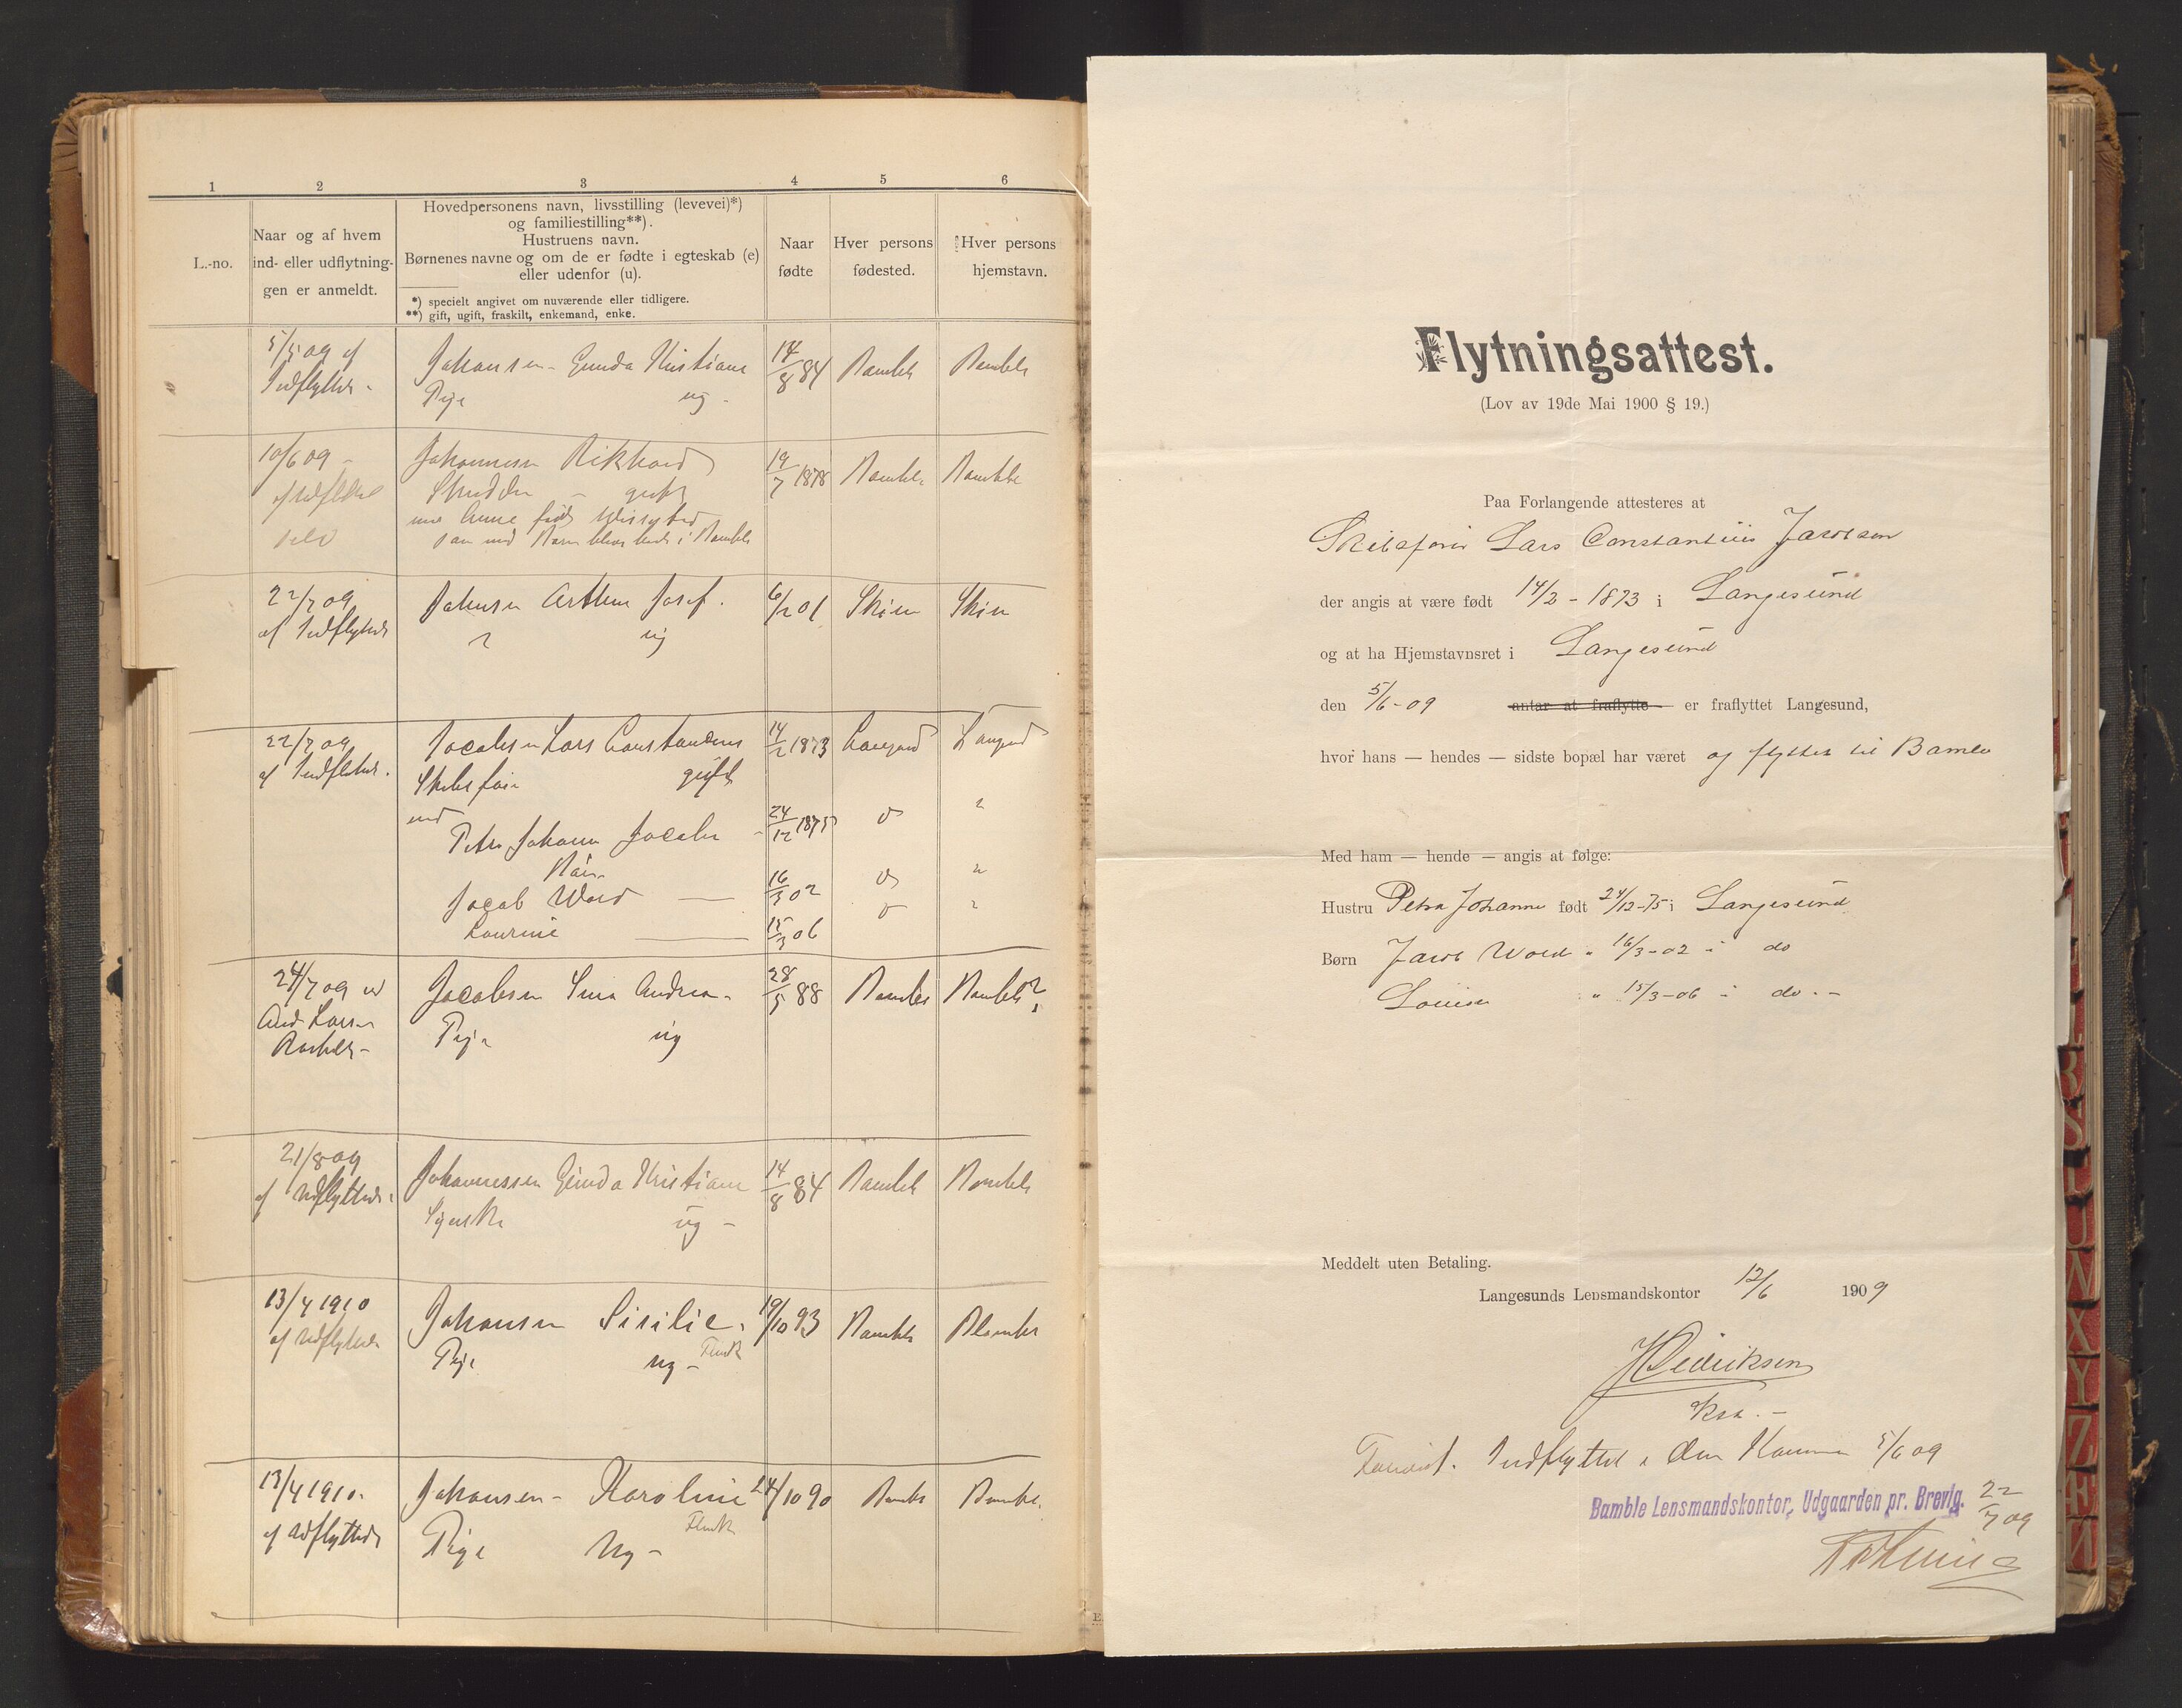 1 2 3 4 5 6
L.-no.
Naar og af hvem
ind- eller udflytnin-
gen er anmeldt.
Hovedpersonens navn, livsstilling (levevei)*)
og familiestilling**).
Hustruens navn.
Børnenes navne og om de er fødte i egteskab (e)
eller udenfor (u).
*) specielt angivet om nuværende eller tidligere.
**) gift, ugift, fraskilt, enkemand, enke.
Naar
fødte
Hver persons
fødested.
Hver persons
hjemstavn.
5/5 09 af Johansen - Gunda Kristiane 14/8 84 Bamble Bamble
Indflytter - Pige ug -
10/6 09 - Johannesen Rikhard 19/7 1878 Bamble Bamble
gift
Anne født
Bamble
22/7 09 Johnsen Arthur Josef. 6/2 01 Skien Skien
af Indflytter ug
22/7 09 Jacobsen Lars Constancius 14/2 1873 Langesund Langesund
af Indflytter. Skibsfører gift
med Petra Johanne Jacobsen - 24/12 1875 do "
Børn
Jacob Word — 16/3 02 do "
Laurine — 15/3 06 do "
24/7 09 Jacobsen Andrea - 28/5 88 Bamble Bamble ?
And. Larsen Pige ug
21/8 09 Johannessen Gunda Kristiane 14/8 84 Bamble Bamble
af Udflytter ug -
13/4 1910 Johansen Sisilie. 19/10 93 Bamble Bamble
af Udflytter Pige ug -
13/4 1910. Johansen - Karoline 24/10 90 Bamble Bamble.
af Udflytter Pige ug -
Flytningsattest.
(Lov av 19de Mai 1900 § 19.)
Paa Forlangende attesteres at
Skibsfører Lars Constantius Jacobsen
der angis at være født 14/2 - 1873 i Langesund
og at ha Hjemstavnsret i Langesund
den 5/6 - 09 antar at fraflytte er fraflyttet Langesund,
hvor hans — hendes — sidste bopæl har været og flyttet til Bamle
Med ham — hende — angis at følge:
Hustru Petra Johanne født 24/12-75 i Langesund
Børn Jacob Word " 16/3-02 i do
Louise " 15/3-06 i do. -
Meddelt uten Betaling.
Langesunds Lensmandskontor 12/6 1909
Indflyttet 5/6 09
Bamble Lensmandskontor, Udgaarden pr. Brevig. 22/7 09